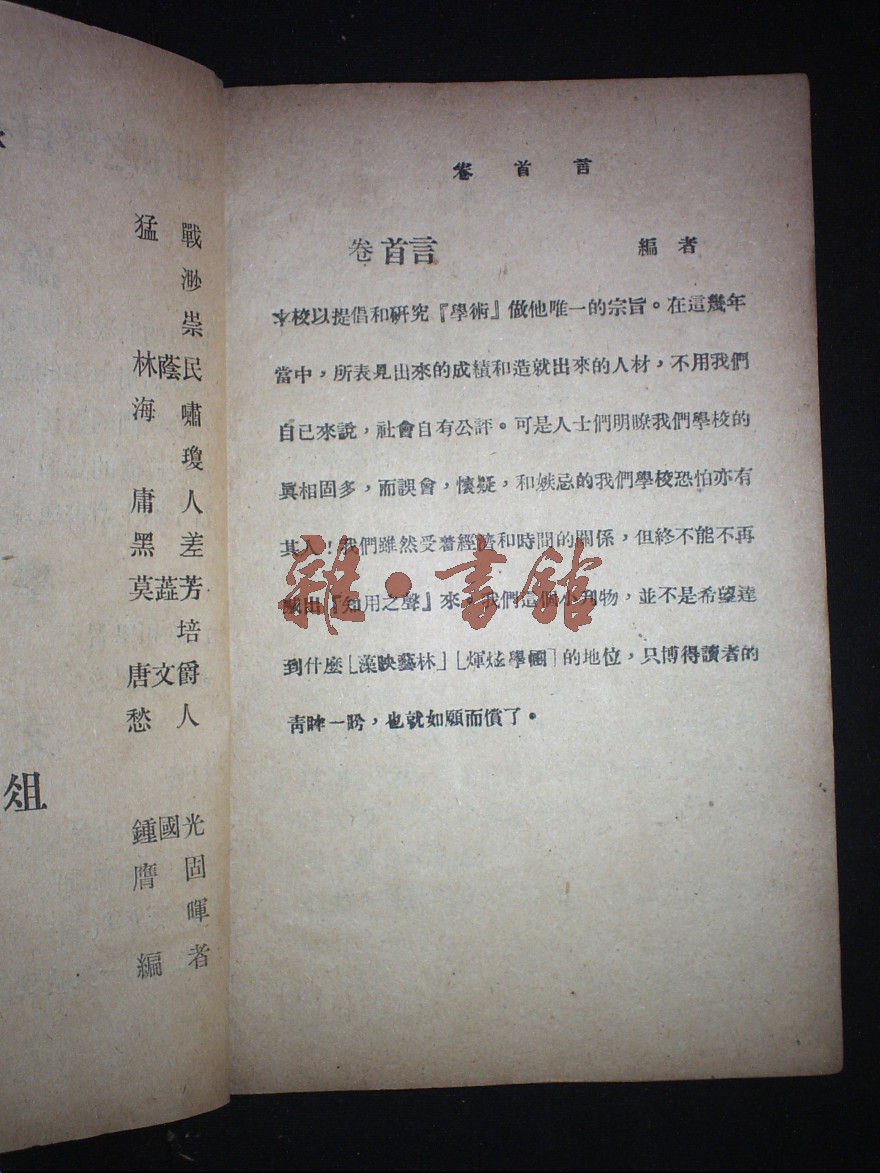 猛 戰
渺
崇
林蔭民
海 嘯
瓊
庸 人
黑 差
莫蕋芳
培
唐文爵
愁 人
俎
鍾國光
膺 固
暉
編 者
卷首言
卷首言 編者
本校以提倡和硏究『學術』做他唯一的宗旨。在這幾年
當中,所表見出來的成積和造就出來的人材,不用我們
自已來說,社會自有公評。可是人士們明瞭我們學校的
眞相固多,而誤會,懷疑,和嫉忌的我們學校恐怕亦有
其人!我們雖然受着經濟和時間的關係,但終不能不再
出『知用之聲』來,我們這個小刋物,並不是希望達
到什麼[藻映藝林][煇炫學]的地位,只博得讀者的
靑眸一盻,也就如願而償了。
雜·書館